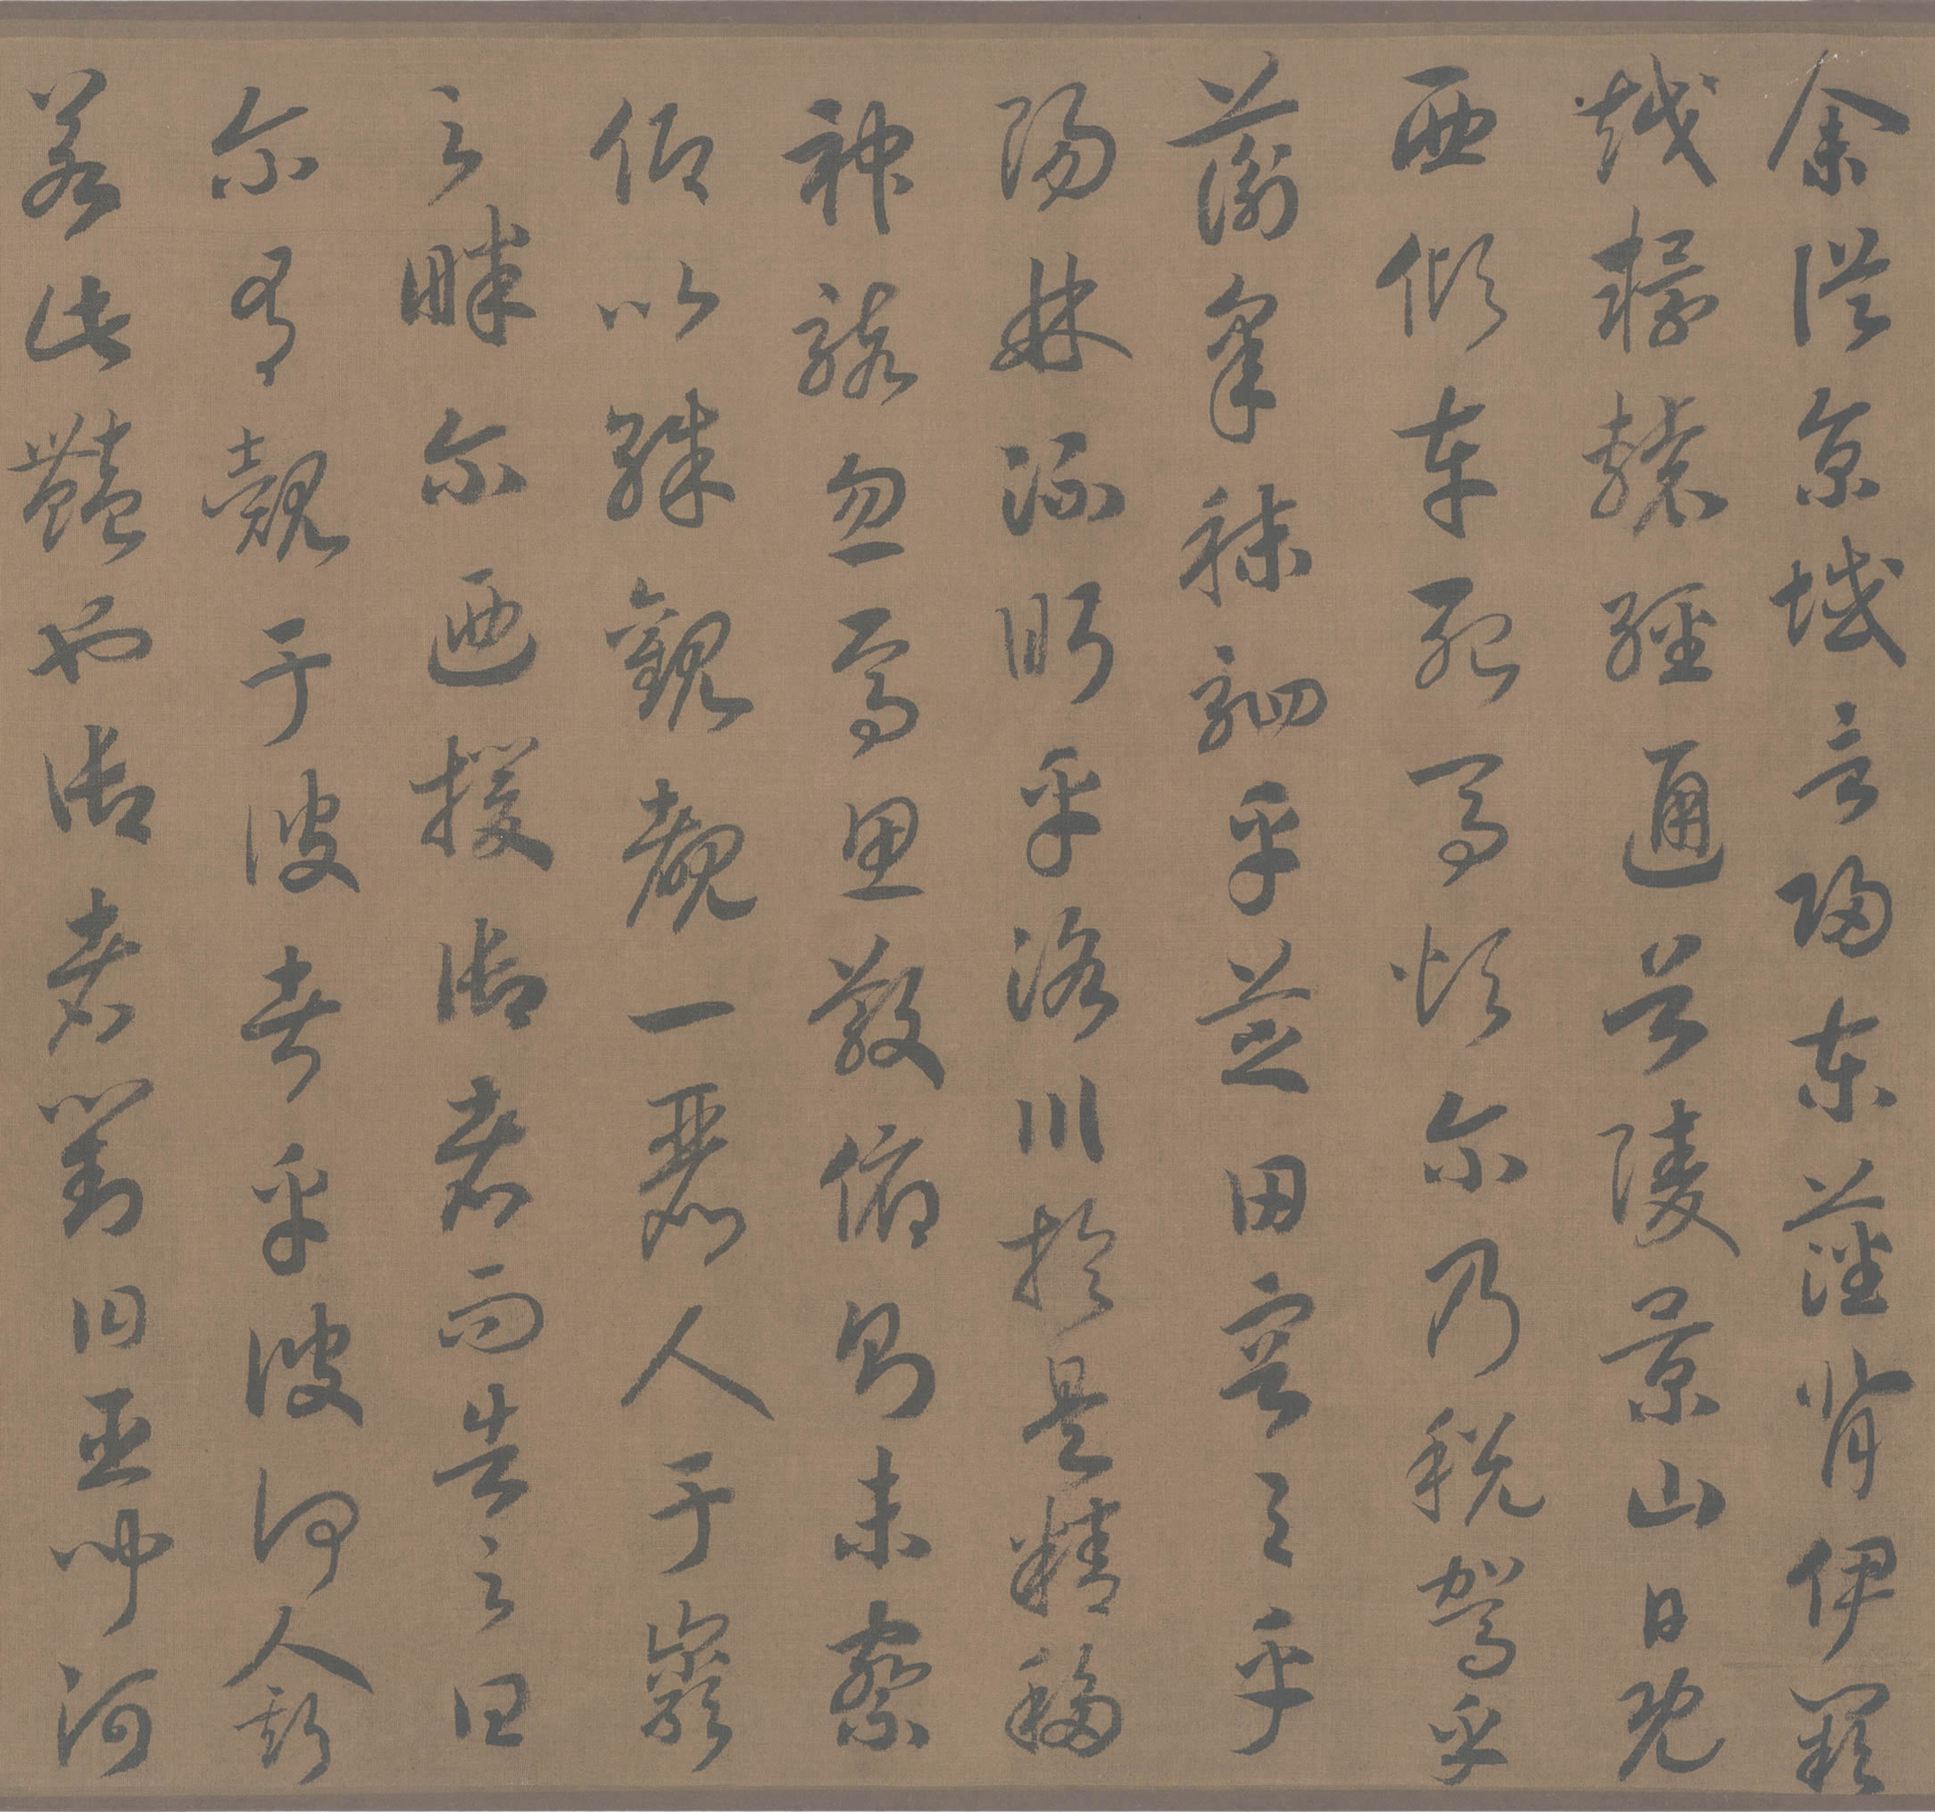 余從京域言歸東藩背伊闕
越轘轅經通谷陵景山日既
西傾車殆馬煩尔乃稅駕乎
蘅皋秣駟乎芝田容與乎
陽林流眄乎洛川於是精移
神駭忽焉思散俯則未察
仰以殊觀覩一麗人于巖
之畔尔迺援御者而告之曰
尔有覿于彼者乎彼何人斯
若此豔也御者對曰臣聞河